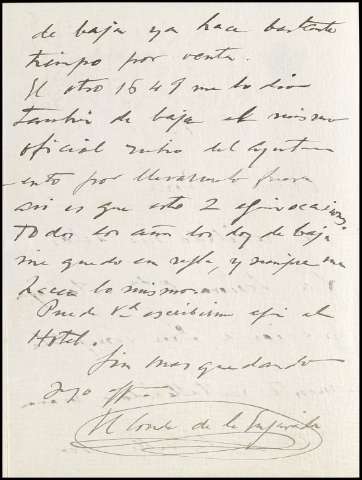 de baja ya hace bastante
tiempo por venta.
El otro 1649 me lo dio
tambien de baja el mismo
oficial
ento por llevarmelo fuera
asi es que esto 2 equivocaciones,
Todos los años los doy de baja
me quedo en regla, y siempre me
hacen lo mismo
Puede Vd escribirme aqui al
Hotel.
Sin mas quedando
suyo affmo
El Conde de la